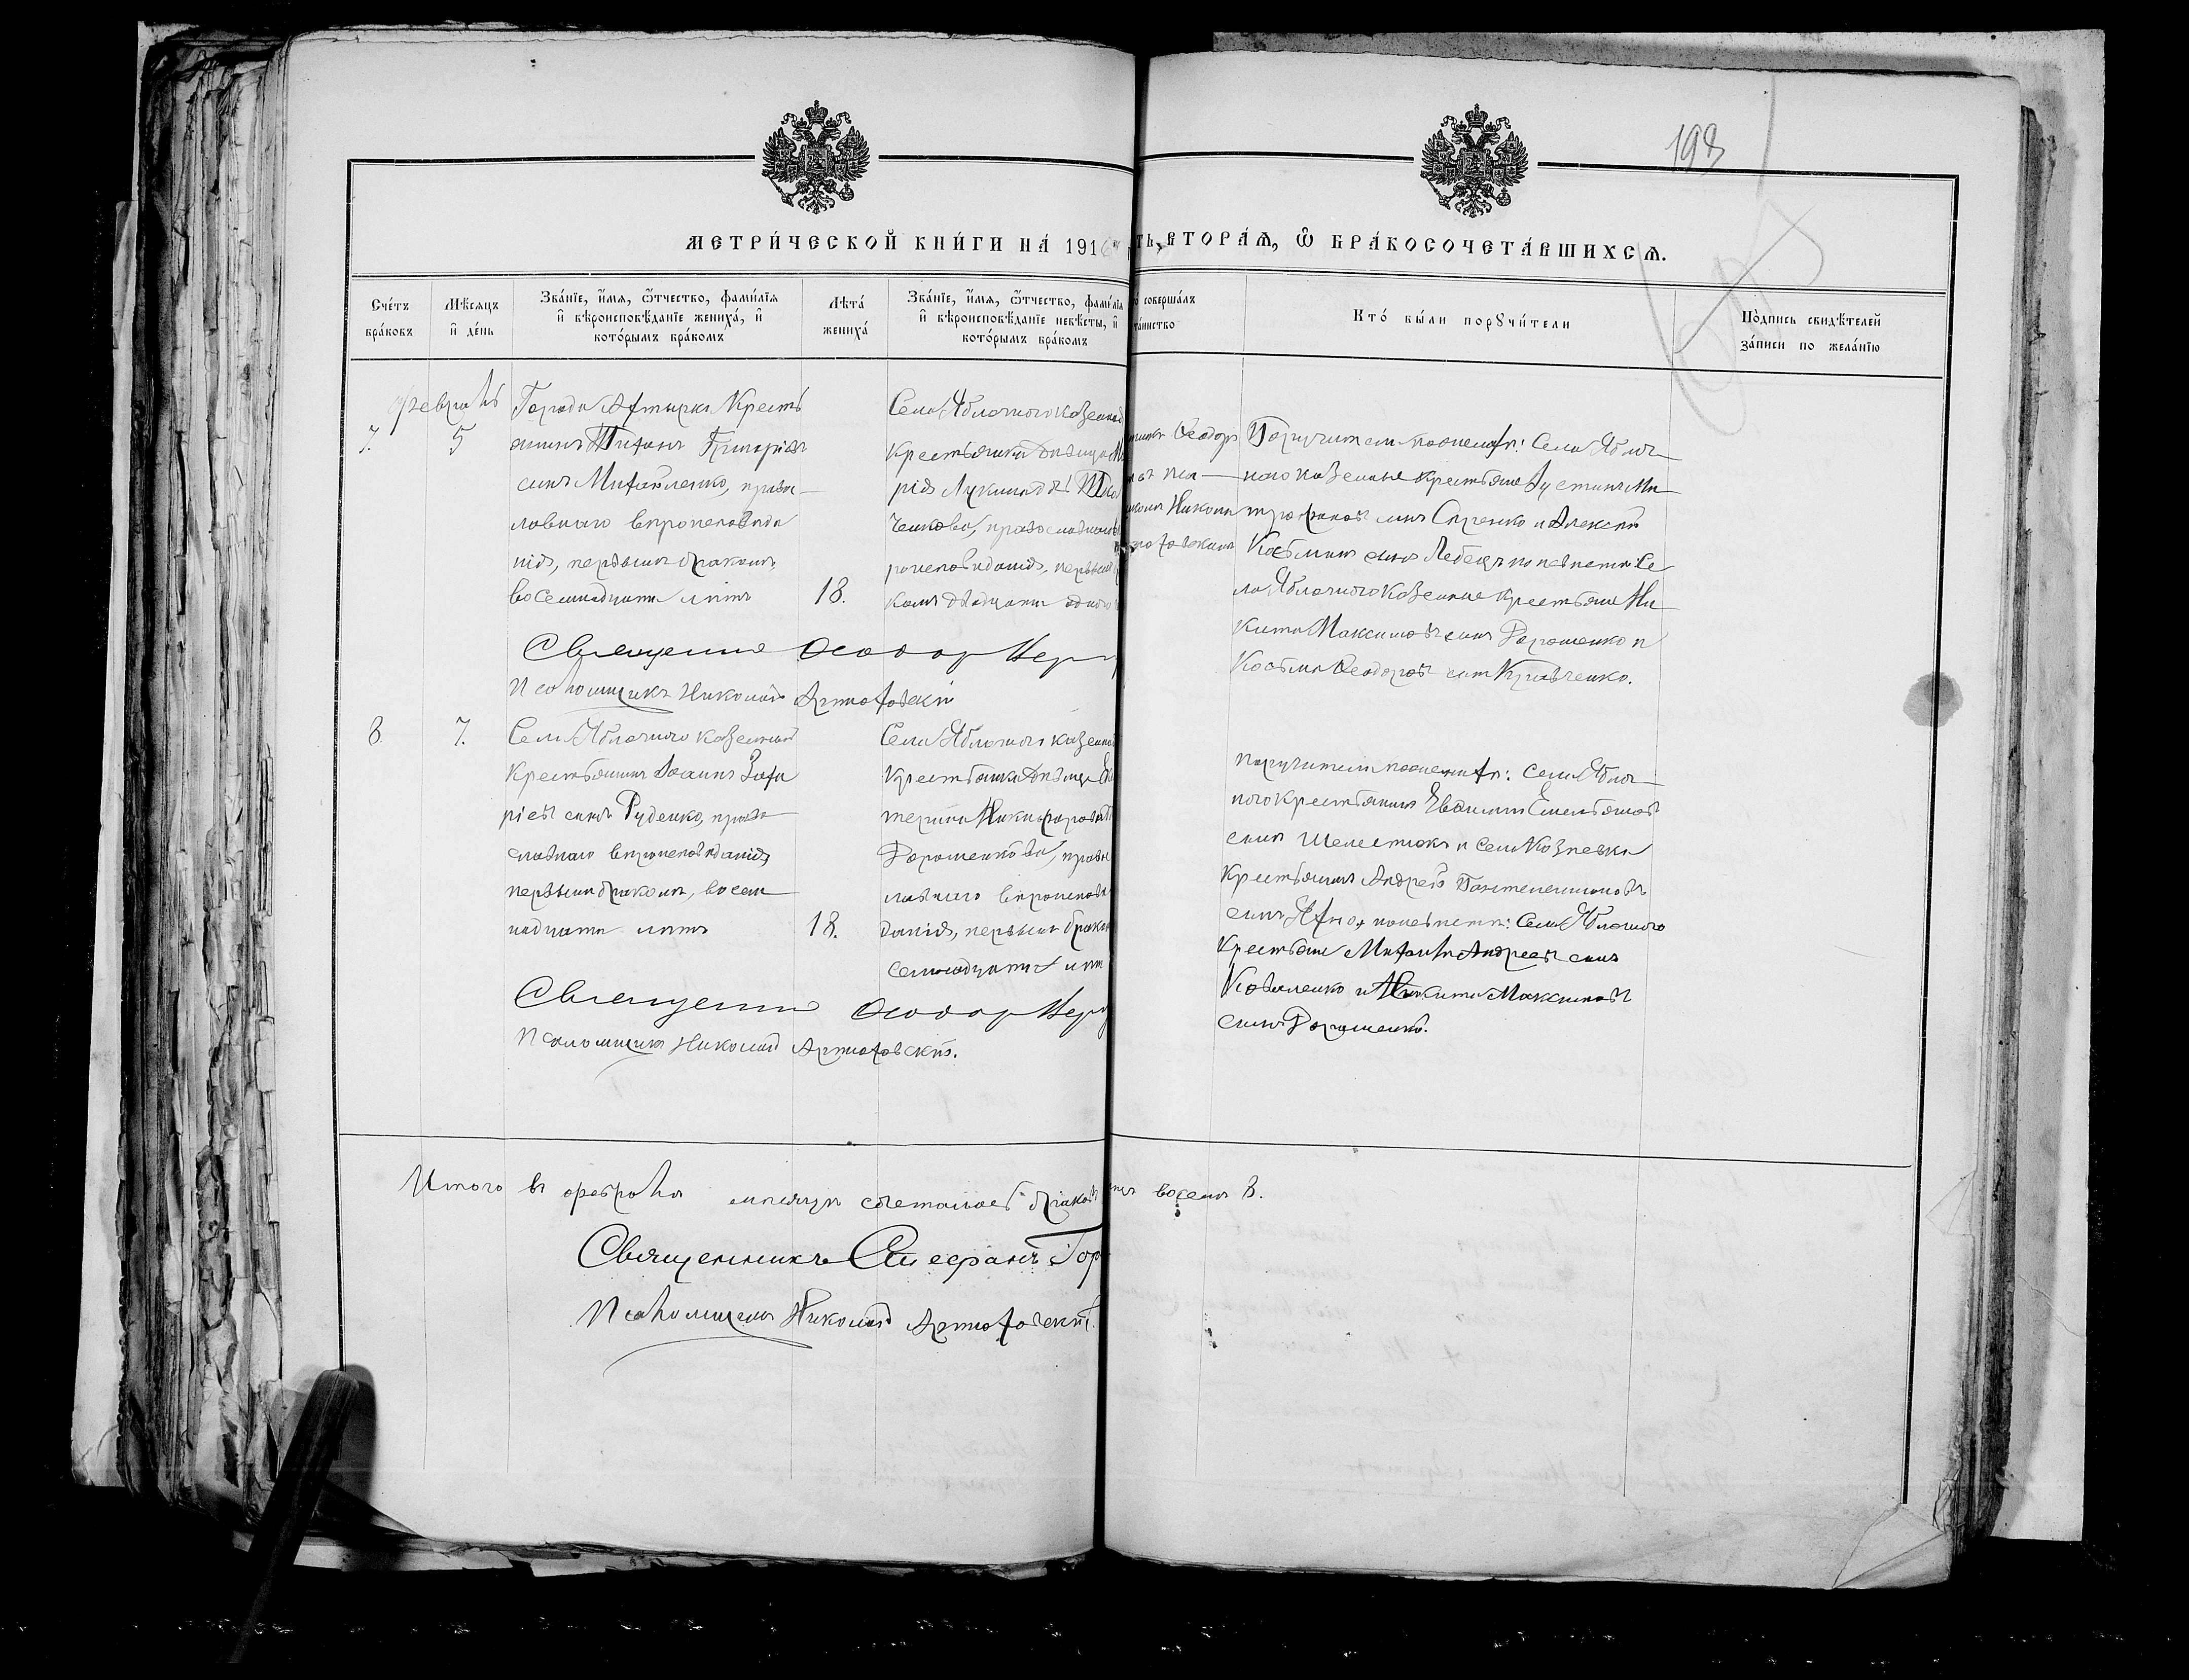 198
МЕТРИ́ЧЕСКОЙ КНИ́ГИ НА́ 1916
ТЬ ВТОРА́Я, Ѡ҆ БРА́КОСОЧЕТА́ВШИХСѦ.
Сче́тъ бра́ковъ
Мѣ́сяцъ и҆ де́нь
Зва́нїе, и҆́мя, ѻ҆́тчество, фами́лїя
и҆ вѣроисповѣ́данїе жениха́, и҆
кото́рымъ бра́комъ
Лѣта́ жениха́
Зва́нїе, и҆́мя, ѻ҆́тчество, фами́лїя
и҆ вѣроисповѣ́данїе невѣ́сты, и҆
кото́рымъ бра́комъ
о́ соверша́лъ
та́инство
Кто́ бы́ли порꙋчи́тели
По́дпись свидѣ́телей
за́писи по жела́нїю
февраль
7.
5
Города Ахтырки Кресть
янинъ Григоріевъ
сынъ Михайленко, право
славнаго вѣроисповѣда
нія, первымъ бракомъ,
восемнадцати лѣтъ
18.
Села Яблочного казенная
Крестьянка дѣвица Ма
рія Лукина
ченкова, православнаго вѣ
роисповѣданія, первымъ
комъ двадцати одного
Феодор
въ пса
Никола
Поручители по женихѣ: Села Яблоч
ного казенные крестьяне Іустинъ Ми
трофановъ сынъ Сиренко и Алексѣй
Косминъ сынъ Лебедь по невѣстѣ Се
ла Яблочного Казенные крестьяне Ни
кита Максимовъ сынъ Дорошенко и
Косьма Феодоровъ сынъ Кравченко.
Священник Феодор
Псаломщикъ Николай Артюховскій
8
7.
Села Яблочного казенный
крестьянинъ Іоаннъ Заха
ріевъ сынъ Руденко, право
славнаго вѣроисповѣданія
первымъ бракомъ, восем
надцати лѣтъ
18.
Села Яблочного казенная
крестьянка дѣвица Ека
терина Никифорова
Дорошенкова, право
славнаго вѣроисповѣ
данія, первымъ браком
семнадцати лѣтъ
поручители по женихѣ: села Яблоч
ного крестьянинъ Евфимій Емельяновъ
сынъ Шелестюкъ и села Козѣевки
крестьянинъ Андрей Пантелеимоновъ
сынъ по невѣстѣ: Села Яблочного
крестьяне Михаилъ Андреевъ сынъ
Коваленко и Никита Максимовъ
сынъ Дорошенко.
Священник Феодор
Псаломщикъ Николай Артюховскій.
Итого въ февралѣ мѣсяцѣ браковъ восемь 8.
Священникъ Гор
Псаломщикъ Николай Артюховскій.